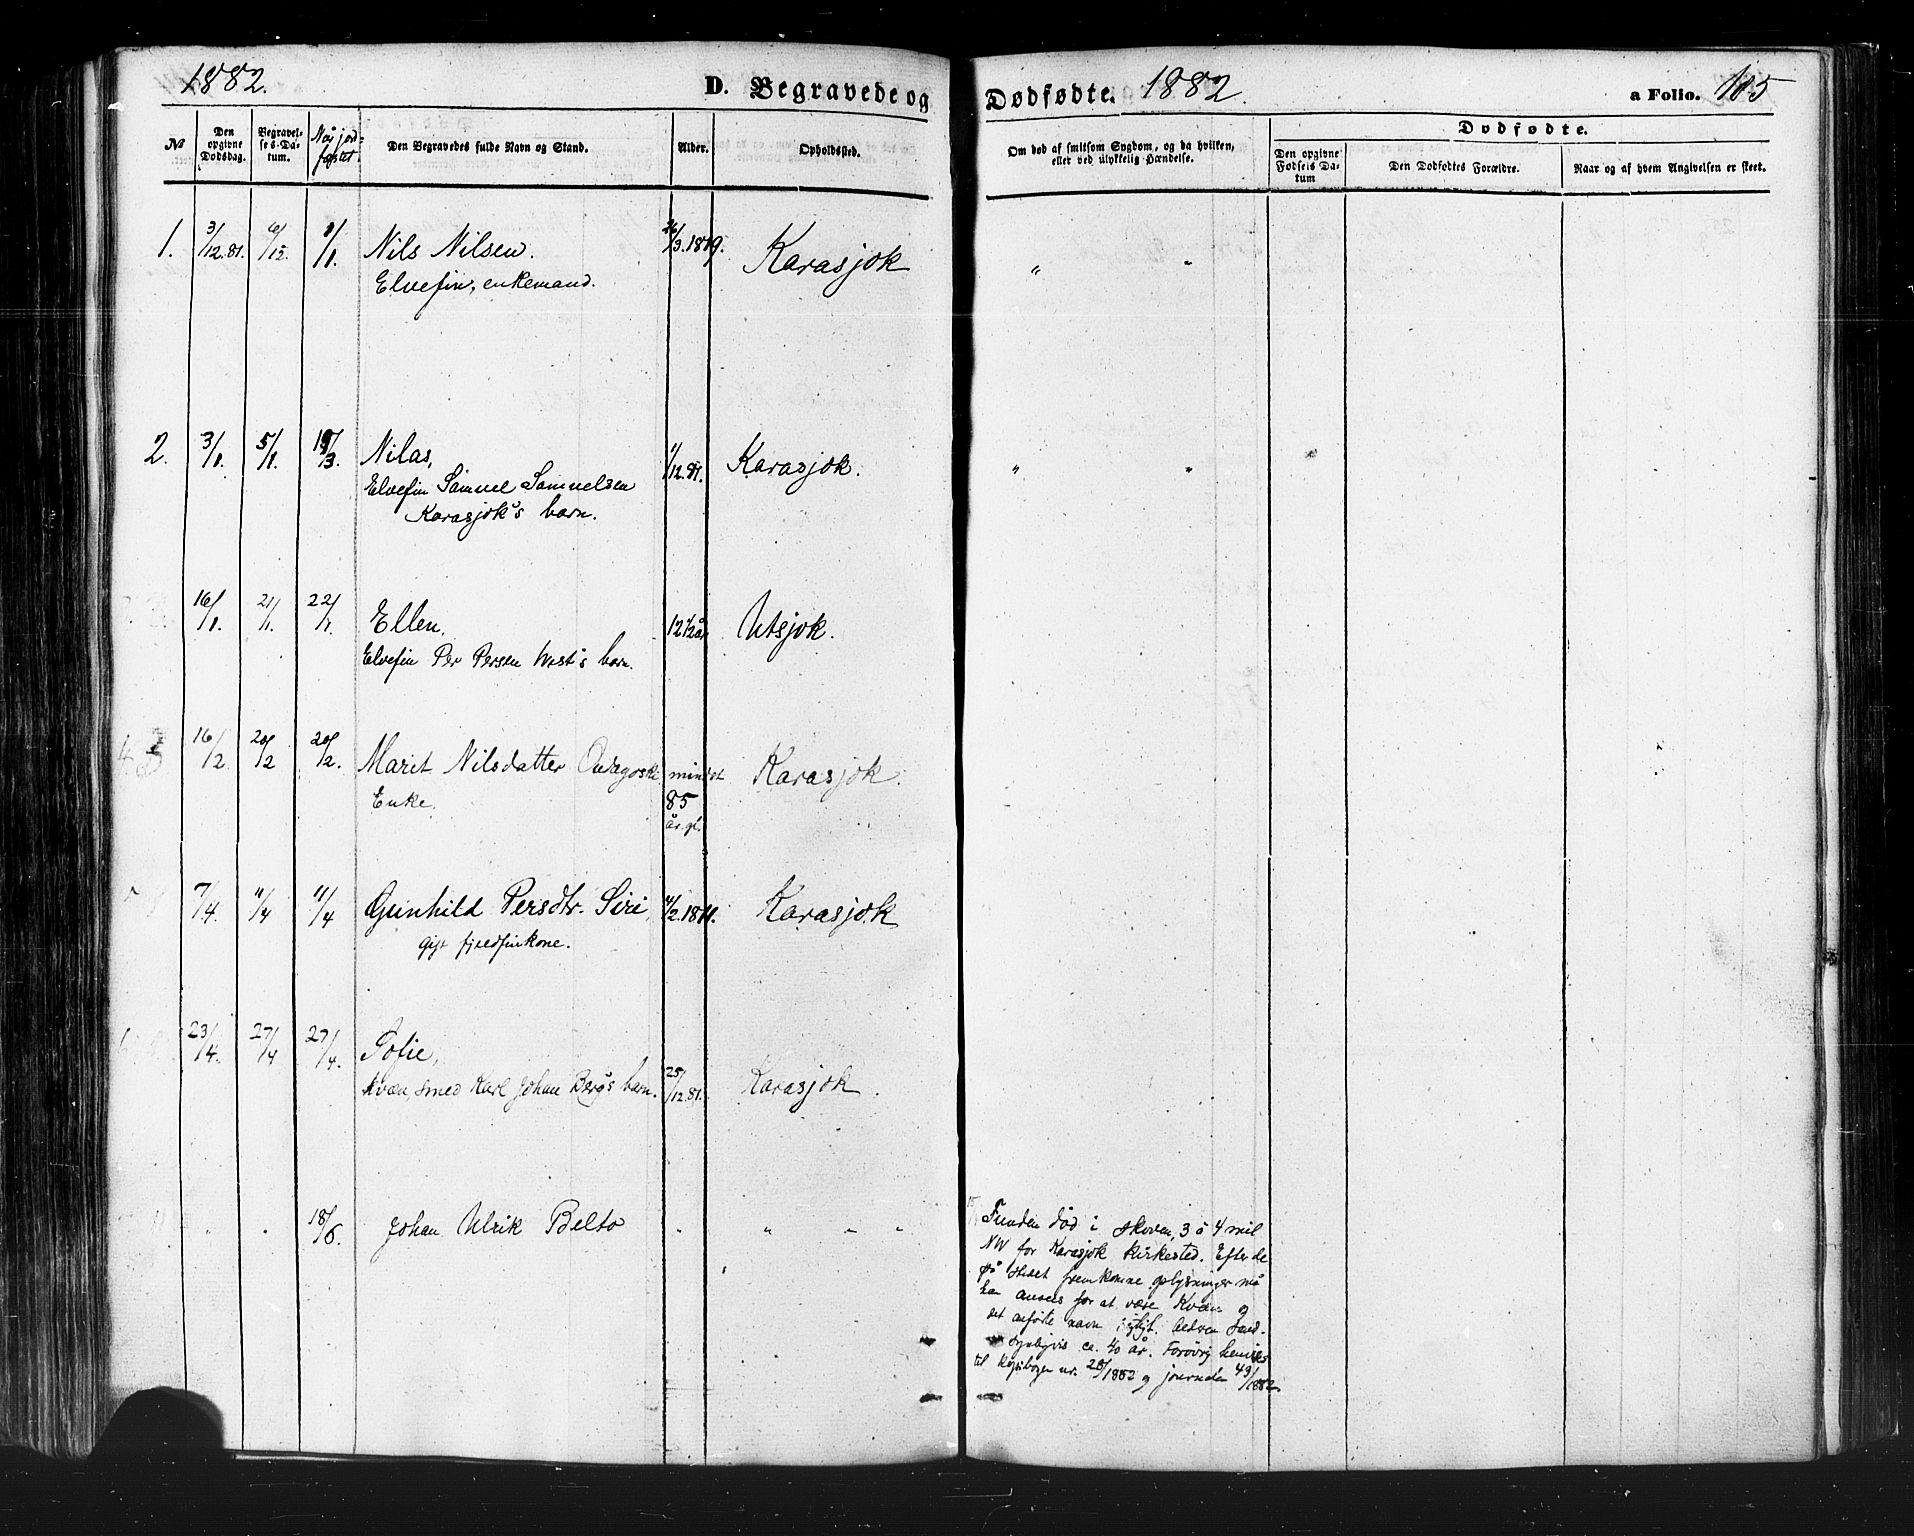 1882. D. Begravede og Dødfødte. 1882. a Folio. 105
No
Den opgivne Dødsdag.
Begravelses-Datum.
Nåj jordfæstet.
Den Begravedes fulde Navn og Stand.
Alder.
Opholdssted.
Om død af smitsom Sygdom, og da hvilken, eller ved ulykkelig Hændelse.
Dødfødte.
Den opgivne Fødsels Datum
Den Dødfødtes Forældre.
Naar og af hvem Angivelsen er skeet.
1. 3/12.81. 6/12. 8/1. Nils Nilsen. 26/3.1819. Karasjok " "
Elvefin, enkemand.
2. 3/1. 5/1. 19/3. Nilas, 1/12.81. Karasjok. " "
Elvefin Samuel Samuelsen
Karasjok's barn.
3 16/1. 21/1. 22/1. Ellen. 12 1/2 år Utsjok.
Elvefin Per Persen West's barn.
4 16/2 20/2 20/2. Marit Nilsdatter mindst Karasjok.
Enke. 85
år gl.
5 7/4. 11/4 11/4 Gunhild Persdtr. Siri, 11/2.1811. Karasjok
gift fjeldfinkone.
23/4. 27/4 27/4. Sofie,
Kvæn, smed Karl Johan Berg's barn. 25/12.81. Karasjok.
" " 18/6. Johan Ulrik Belto " " " "
Funden død i skoven, 3 à 4 mil
NW for Karasjok kirkested. Efter de
på stedet fremkomne oplysninger må
han ansees for at være Kvæn og
det anførte navn rigtigt. Alder
ca. 40 år. Forøvrig henvises
til kopibogen nr. 28/1882 og journalen 49/1882.